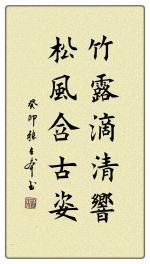 竹露滴清響
松風含古姿
癸卯